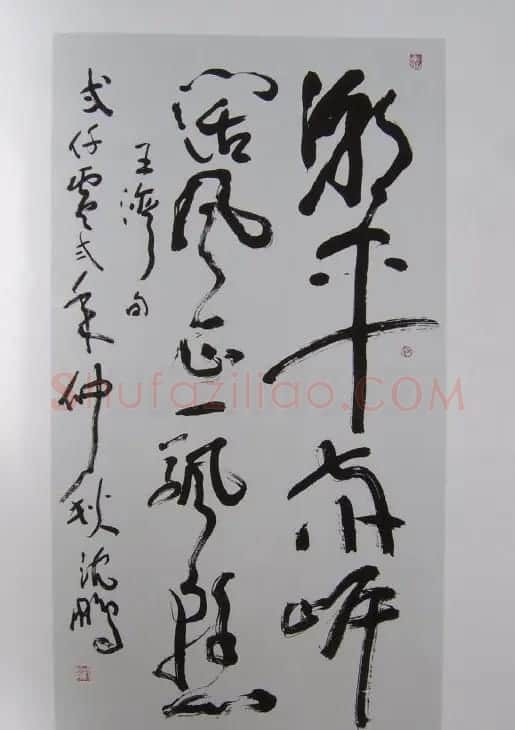 潮平两岸
阔风正一帆悬
王湾句
弍仟零弍年仲秋沈鹏
Shufaziliao.COM